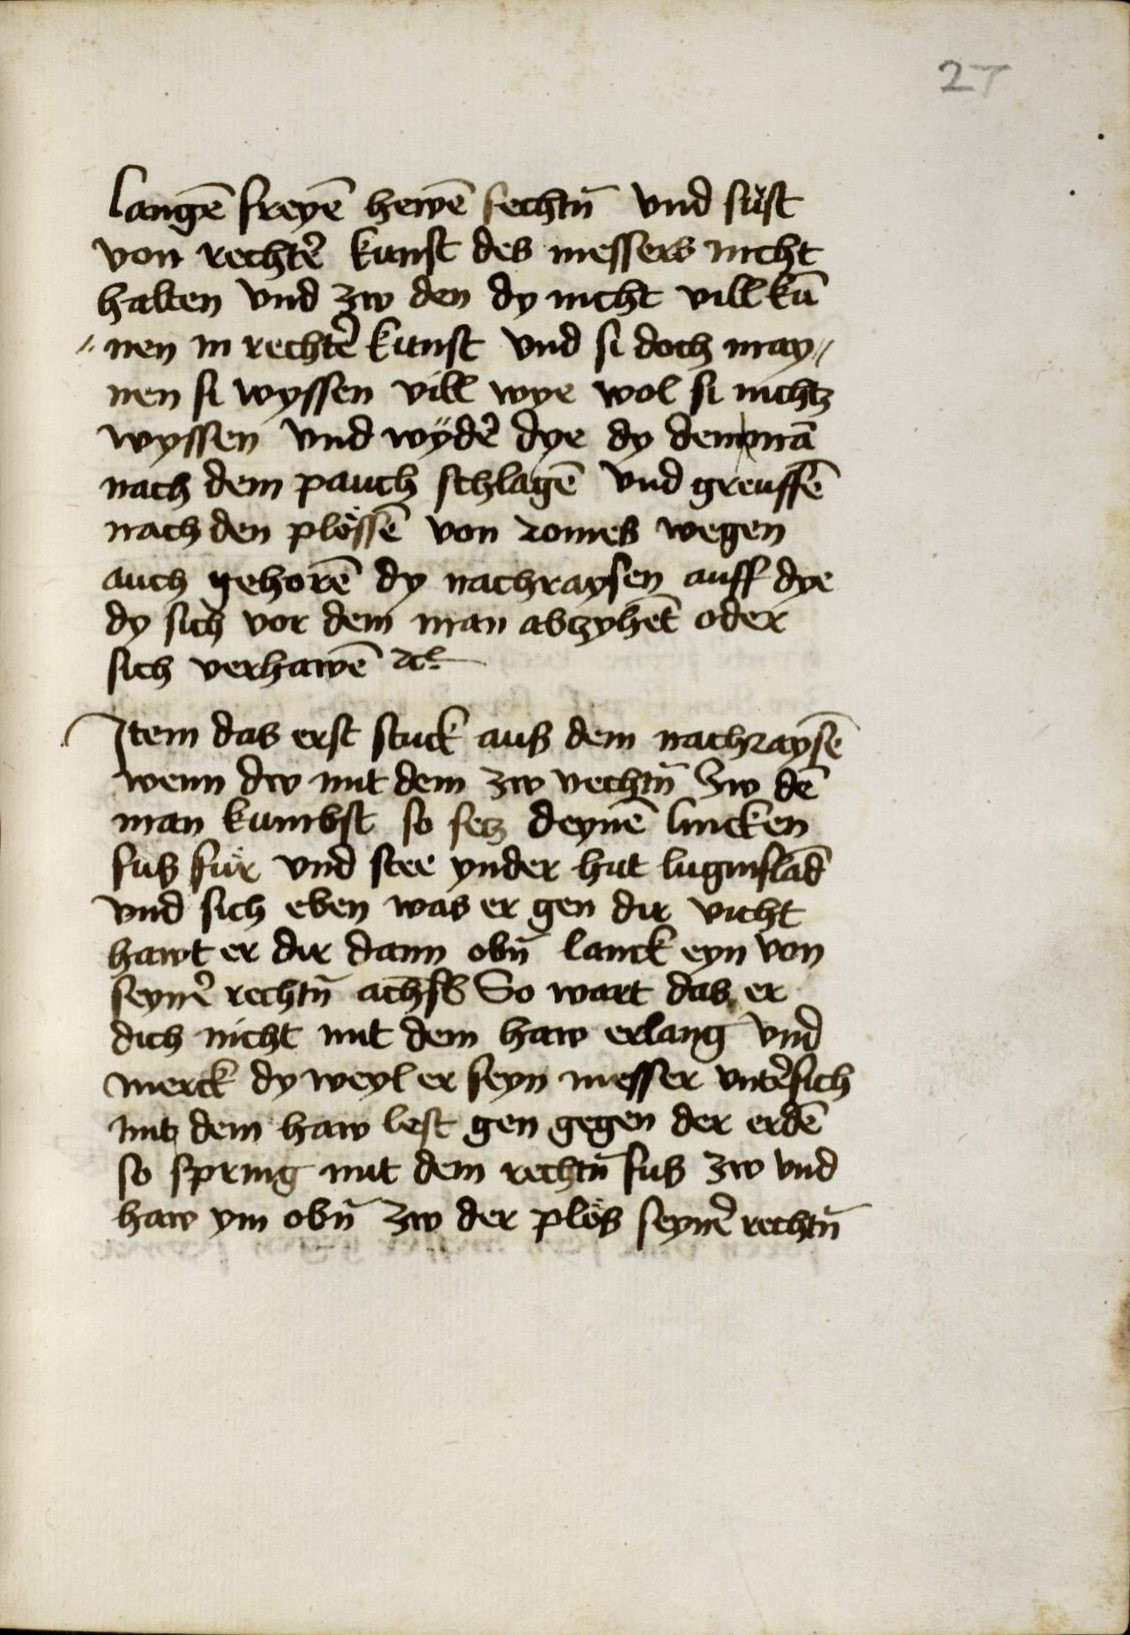 27
langē freyē hewē fechtn̄ vnd süst
von rechtē kunst des messers nicht
halten vnd zw den dy nicht vill kū
nen in rechtē kunst vnd si doch may//
nen si wyssen vill wye wol si nichtz
wyssen vnd wÿdē dye dy dem mā
nach dem pauch schlagē vnd greuffē
nach den plössē von romes wegen
auch gehorē dy nachraysen auff dye
dy sich vor dem man abzyhēt oder
sich verhawē ꝛcͭ
Item das erst stuck auß dem nachraysē
wenn dw mit dem zw vechtn̄ zw dē
man kumbst so setz deynē lincken
fuß für vnd stee ynder hut luginslād
vnd sich eben was er gen dir vicht
hawt er dir dann obn̄ lanck eyn von
seynē rechtn̄ achslß So wart das er
dich nicht mit dem haw erlang vnd
merck dy weyl er seyn messer vntēsich
mit dem haw lest gen gegen der erdē
so spring mit dem rechtn̄ fuß zw vnd
haw ym obn̄ zw der plöß seynē rechtn̄